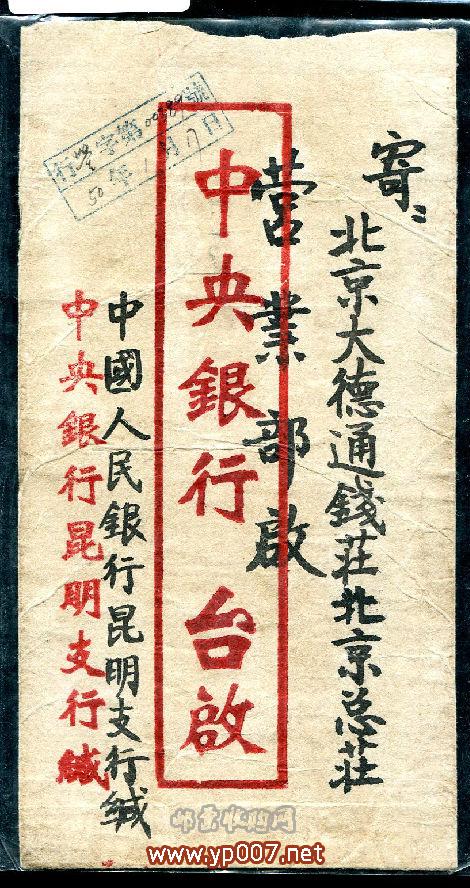 寄:
北京大德通錢莊北京总莊
营業部啟
中央銀行 台啟
中國人民銀行昆明支行缄
中央銀行昆明支行緘
行營字第00189號
50年1月7日
邮票收购网
www.yp007.net